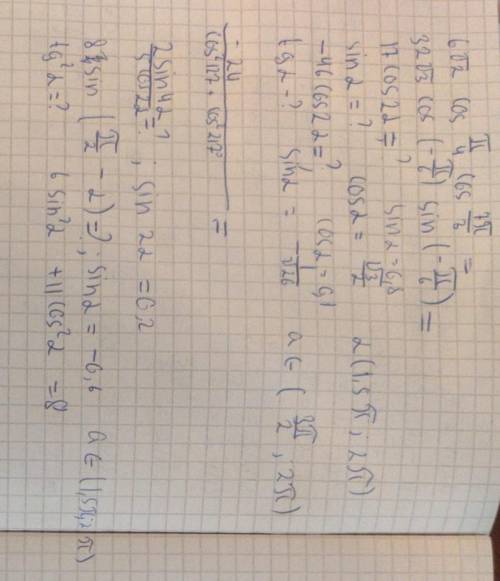 6√2 cos π/4 cos 7π/3 =
32√3 cos (-π/6) sin (-π/6) =
17 cos 2α = ? sin α = 0,8
sin α = ? cos α = √3/2 α (1,5π ; 2π)
-46 cos 2α = ? cos α = 0,1
tg α - ? sin α = -1/√26 α ∈ (3π/2 ; 2π)
-24/(cos²117 + cos²207°) =
2 sin 4α/5 cos 2α = ? ; sin 2α = 0,2
sin (π/2 - α) = ? ; sin α = -0,6 α ∈ (1,5π; 2π)
tg²α = ? 6 sin²α + 11 cos²α = 8